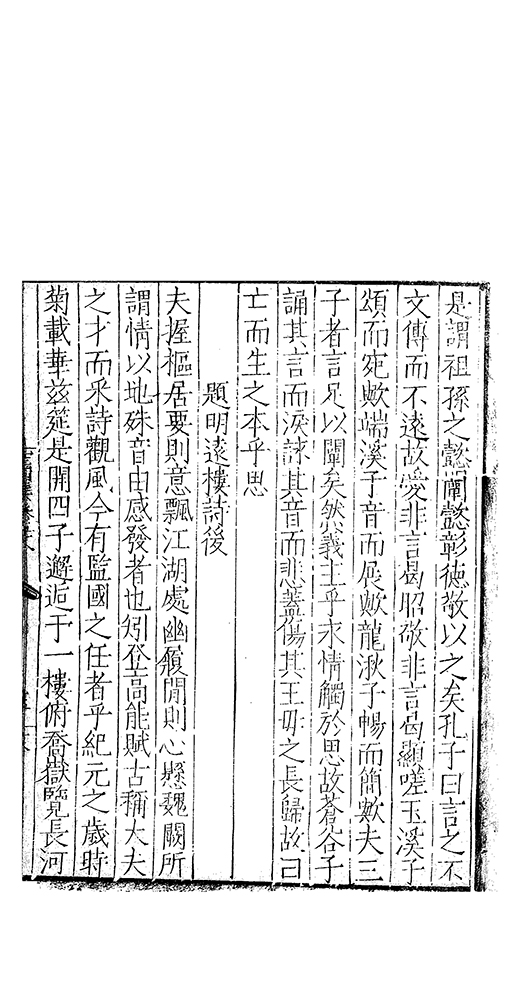 是謂祖孫之懿闡懿彰德敬以之矣孔子曰言之不
文傳而不遠故愛非言曷昭敬非言曷顯嗟玉溪子
頌而宛歟端溪子音而展歟龍湫子暢而簡歟夫三
子者言足以闡矣然義主乎求情觸於思故蒼谷子
誦其言而淚詠其音而悲蓋傷其王母之長歸故曰
亡而生之本乎思
題明遠樓詩後
夫握樞居要則意飄江湖處幽頫閒則心懸魏闕所
謂情以地殊音由感發者也矧登高能賦古稱大夫
之才而采詩觀風今有監國之任者乎紀元之歲時
菊載華兹筵是開四子邂逅于一樓俯喬嶽覽長河